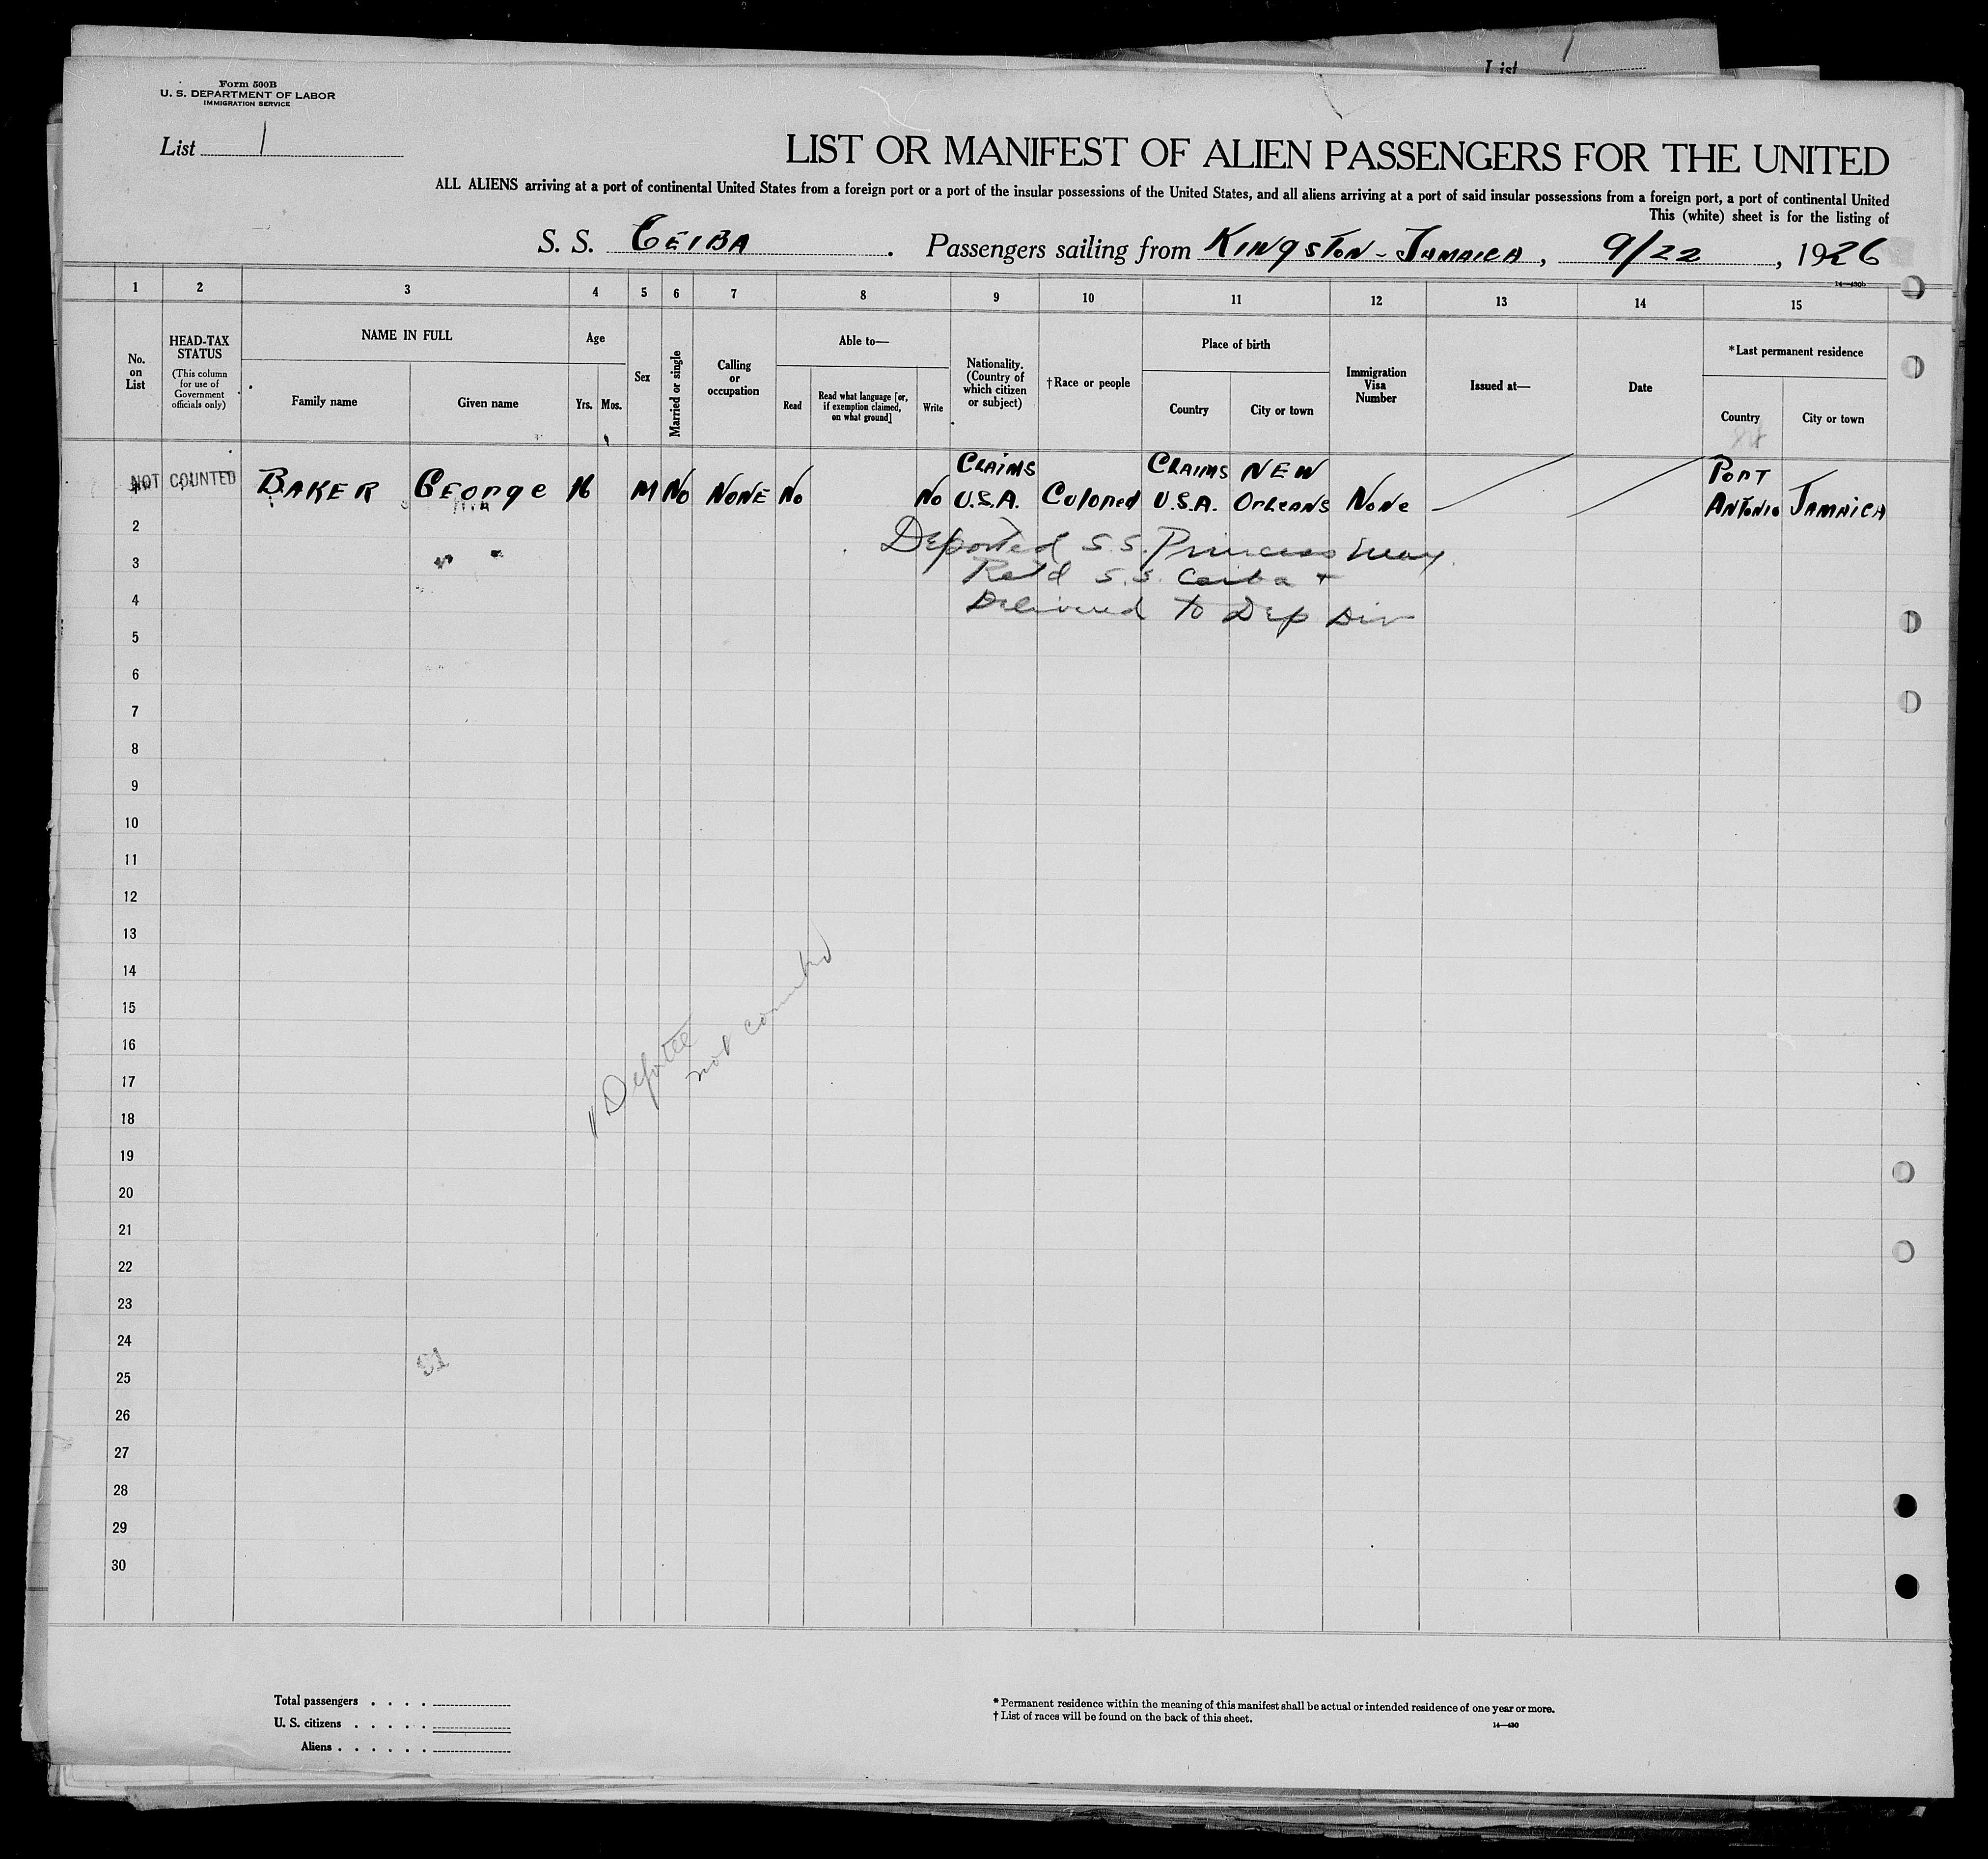 List 1
Form 500B
U. S. DEPARTMENT OF LABOR
IMMIGRATION SERVICE
List 1
LIST OR MANIFEST OF ALIEN PASSENGERS FOR THE UNITED
ALL ALIENS arriving at a port of continental United States from a foreign port or a port of the insular possessions of the United States, and all aliens arriving at a port of said insular possessions from a foreign port, a port of continental United
This (white) sheet is for the listing of
S. S. CEIBA. Passengers sailing from KINgSTON - JAMAICA, 9/22, 1926
14—430b
1 2 3 4 5 6 7 8 9 10 11 12 13 14 15
No. on List
HEAD-TAX STATUS
(This column for use of Government officials only)
NAME IN FULL
Family name
Given name
Age
Yrs. Mos.
Sex
Married or single
Calling or occupation
Able to—
Read
Read what language [or, if exemption claimed, on what ground]
Write
Nationality. (Country of which citizen or subject)
†Race or people
Place of birth
Country
City or town
Immigration Visa Number
Issued at—
Date
*Last permanent residence
Country
City or town
NOT COUNTED BAKER GEORge 16 M No NONE No No CLAIMS U.S.A. Colored CLAIMS U.S.A. NEW ORLEANS NoNe PORT ANTONIO JAMAICA
2
Deported S.S. Princess May
3
Ret'd S.S. Ceiba +
4
Delivered to Dep Div
5
6
7
8
9
10
11
12
13
14
15
16
17
18
19
20
21
22
23
24
25
26
27
28
29
30
"Deportee
not counted
51
Total passengers . . . .
U. S. citizens . . . . .
Aliens . . . . . .
* Permanent residence within the meaning of this manifest shall be actual or intended residence of one year or more.
† List of races will be found on the back of this sheet.
14—430